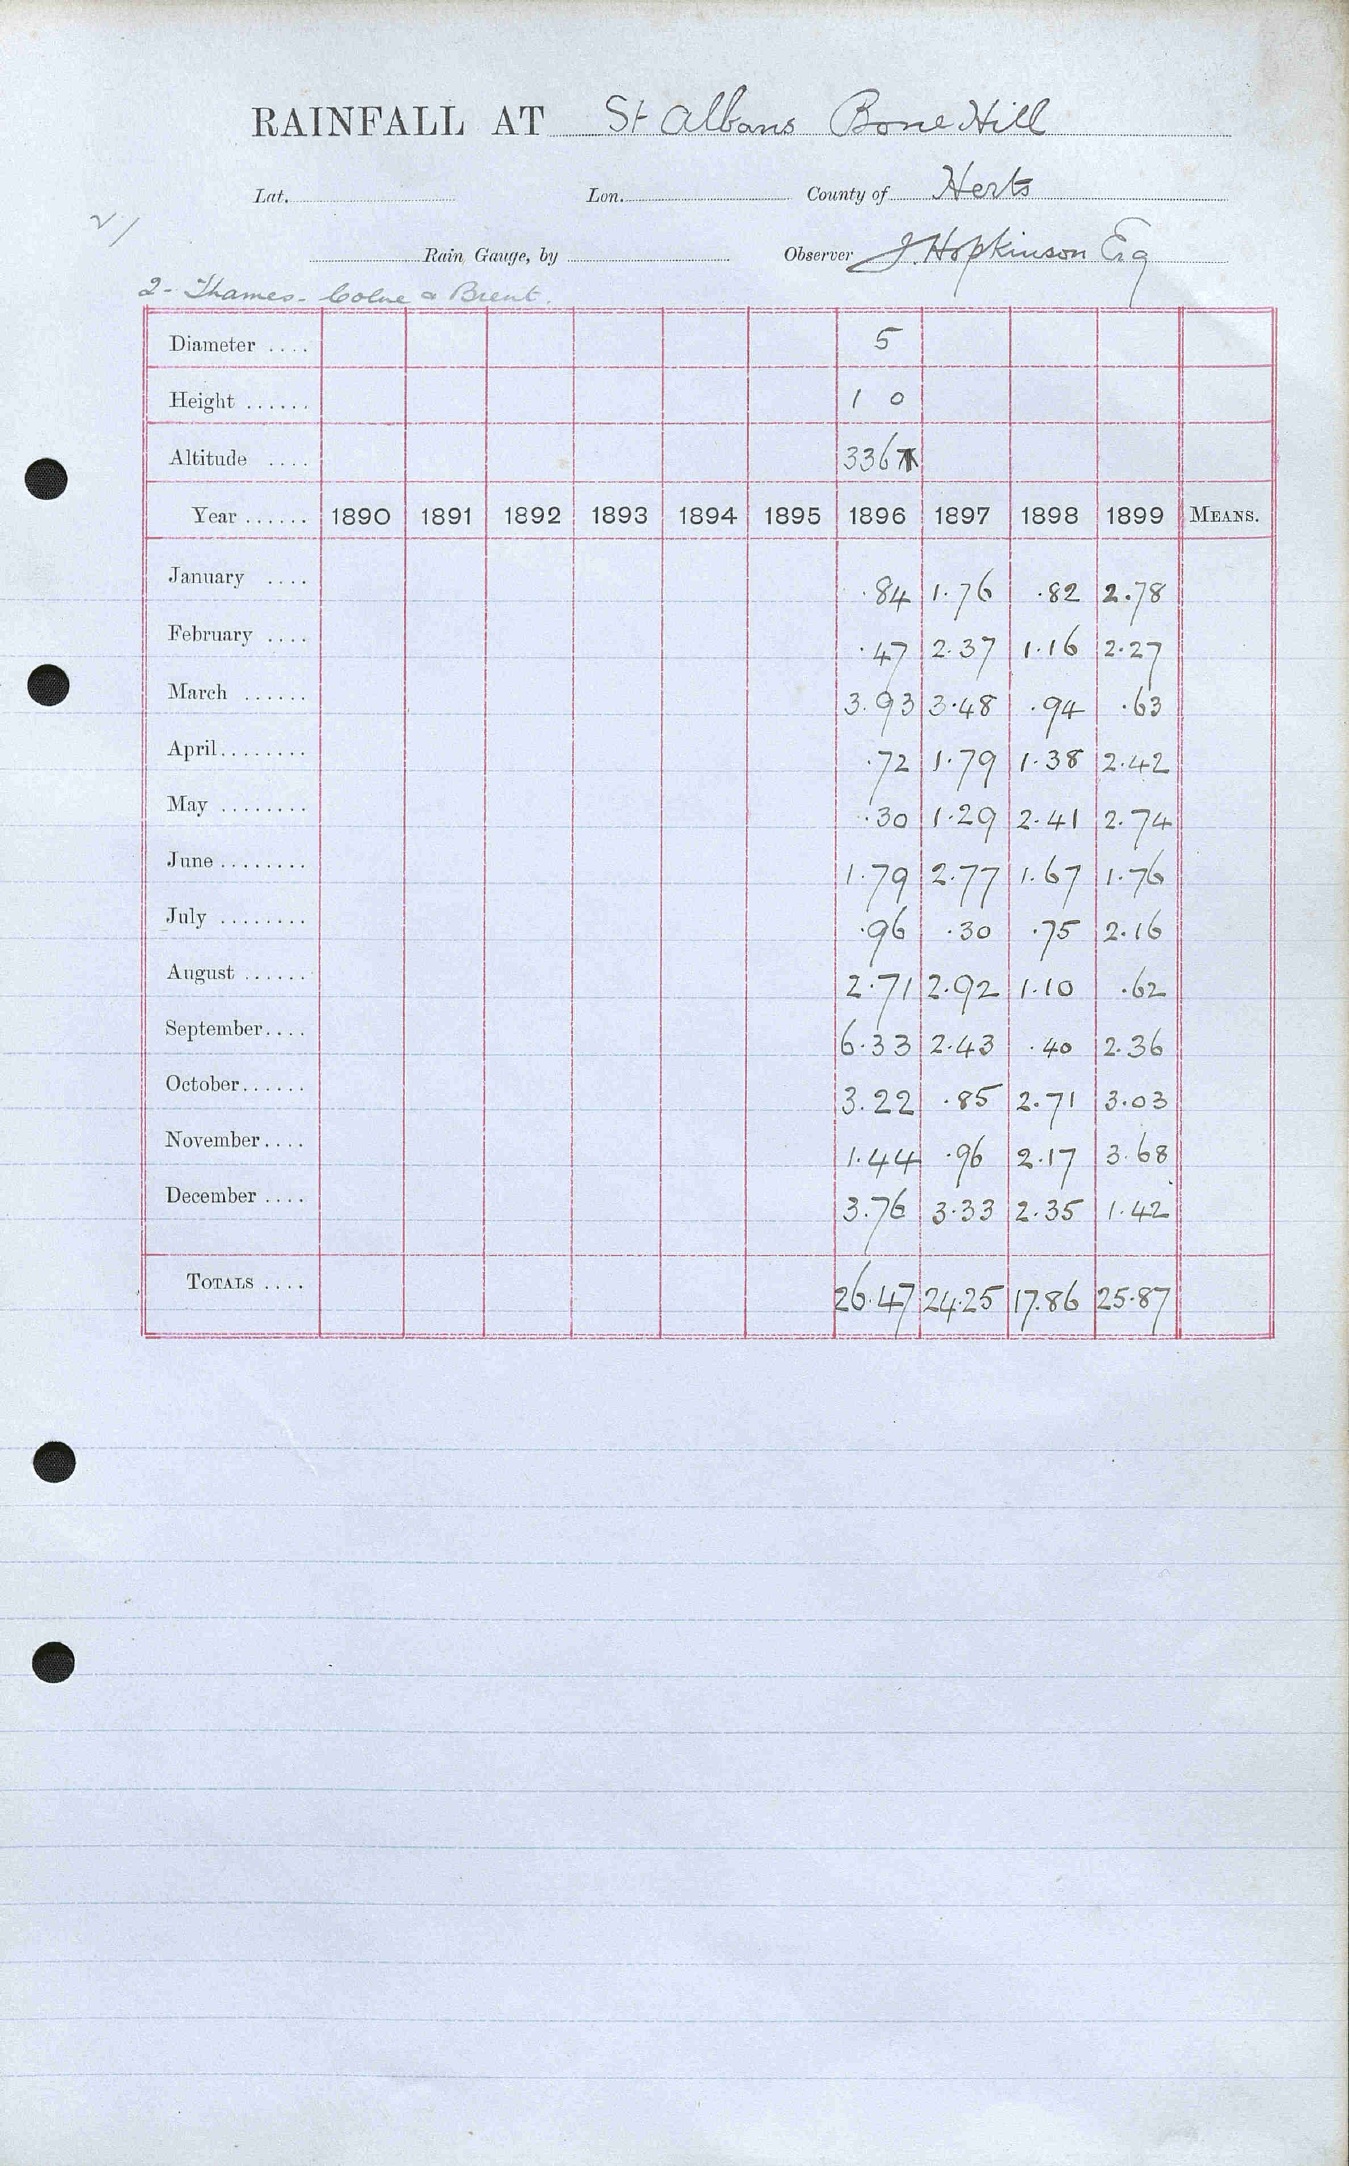 RAINFALL AT St Albans Bone Hill
Lat. Lon. County of Herts
Rain Gauge, by Observer J. Hopkinson Esq
2 - Thames - Colne & Brent.
Diameter .... 5
Height ...... 1 0
Altitude .... 336
Year ...... 1890 1891 1892 1893 1894 1895 1896 1897 1898 1899 MEANS.
January .... .84 1.76 .82 2.78
February .... .47 2.37 1.16 2.27
March ...... 3.93 3.48 .94 .63
April........ .72 1.79 1.38 2.42
May ........ .30 1.29 2.41 2.74
June ........ 1.79 2.77 1.67 1.76
July ........ .96 .30 .75 2.16
August ...... 2.71 2.92 1.10 .62
September.... 6.33 2.43 .40 2.36
October...... 3.22 .85 2.71 3.03
November.... 1.44 .96 2.17 3.68
December .... 3.76 3.33 2.35 1.42
TOTALS .... 26.47 24.25 17.86 25.87